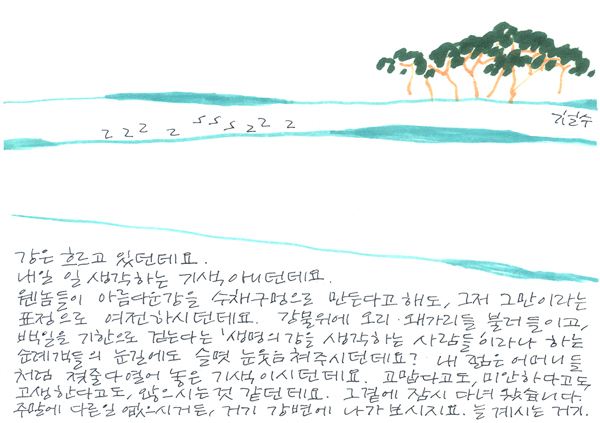 강은 흐르고 있던데요.
내일 일 생각하는 기색 아니던데요.
웬놈들이 아름다운강을 수채구멍으로 만든다고 해도, 그저 그만이라는
표정으로 여전하시던데요. 강물위에 오리·왜가리들 불러들이고,
백일을 기한으로 걷는다는 '생명의강을 생각하는 사람들'이라나 하는
순례객들의 눈길에도 슬몃 눈웃음쳐주시던데요? 내 젊은 어머니들
처럼 젖줄 다 열어 놓은 기색이시던데요. 고맙다고도, 미안하다고도,
고생한다고도, 않으시는것 같던데요. 그곁에 잠시 다녀 왔습니다.
주말에 다른일 없으시거든, 거기 강변에 나가 보시지요. 늘 계시는 거기.